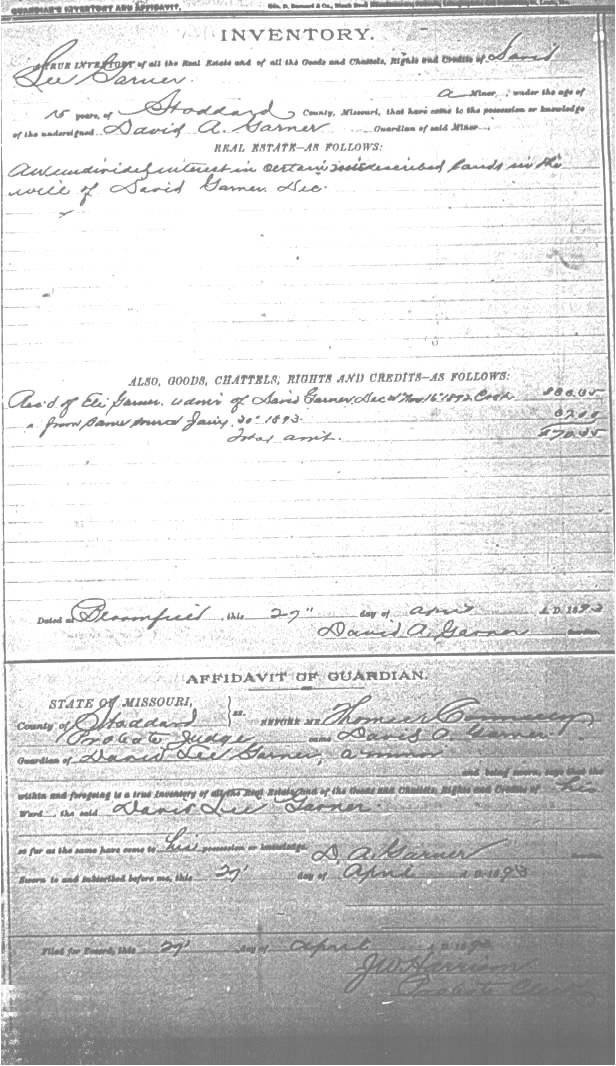 GUARDIAN'S INVENTORY AND AFFIDAVIT.
INVENTORY.
TRUE INVENTORY of all the Real Estate and of all the Goods and Chattels, Rights and Credits of David
Lee Garner. a Minor, under the age of
15 years, of Stoddard County, Missouri, that have come to the possession or knowledge
of the undersigned David A. Garner Guardian of said Minor
REAL ESTATE—AS FOLLOWS:
An undivided interest in certain described lands in the
will of David Garner Dec.
ALSO, GOODS, CHATTELS, RIGHTS AND CREDITS—AS FOLLOWS:
Rec'd of Eli Garner. admr of David Garner, Dec'd Nov 16" 1892 Cash
" from Same source Jany. 20" 1893.
Total amt.
Dated at Bloomfield, this 27" day of April A. D. 1893
David A. Garner Guardian.
AFFIDAVIT OF GUARDIAN.
STATE OF MISSOURI,
County of Stoddard ss. BEFORE ME, Thomas Connelly
Probate Judge came David A. Garner
Guardian of David Lee Garner, a minor
and being sworn, says that the
within and foregoing is a true Inventory of all the Real Estate and of the Goods and Chattels, Rights and Credits of his
Ward the said David Lee Garner.
so far as the same have come to his possession or knowledge. D. A. Garner
Sworn to and subscribed before me, this 27" day of April A. D. 1893
Filed for Record, this 27" day of April A. D. 1893
J W Harrison
Probate Clerk